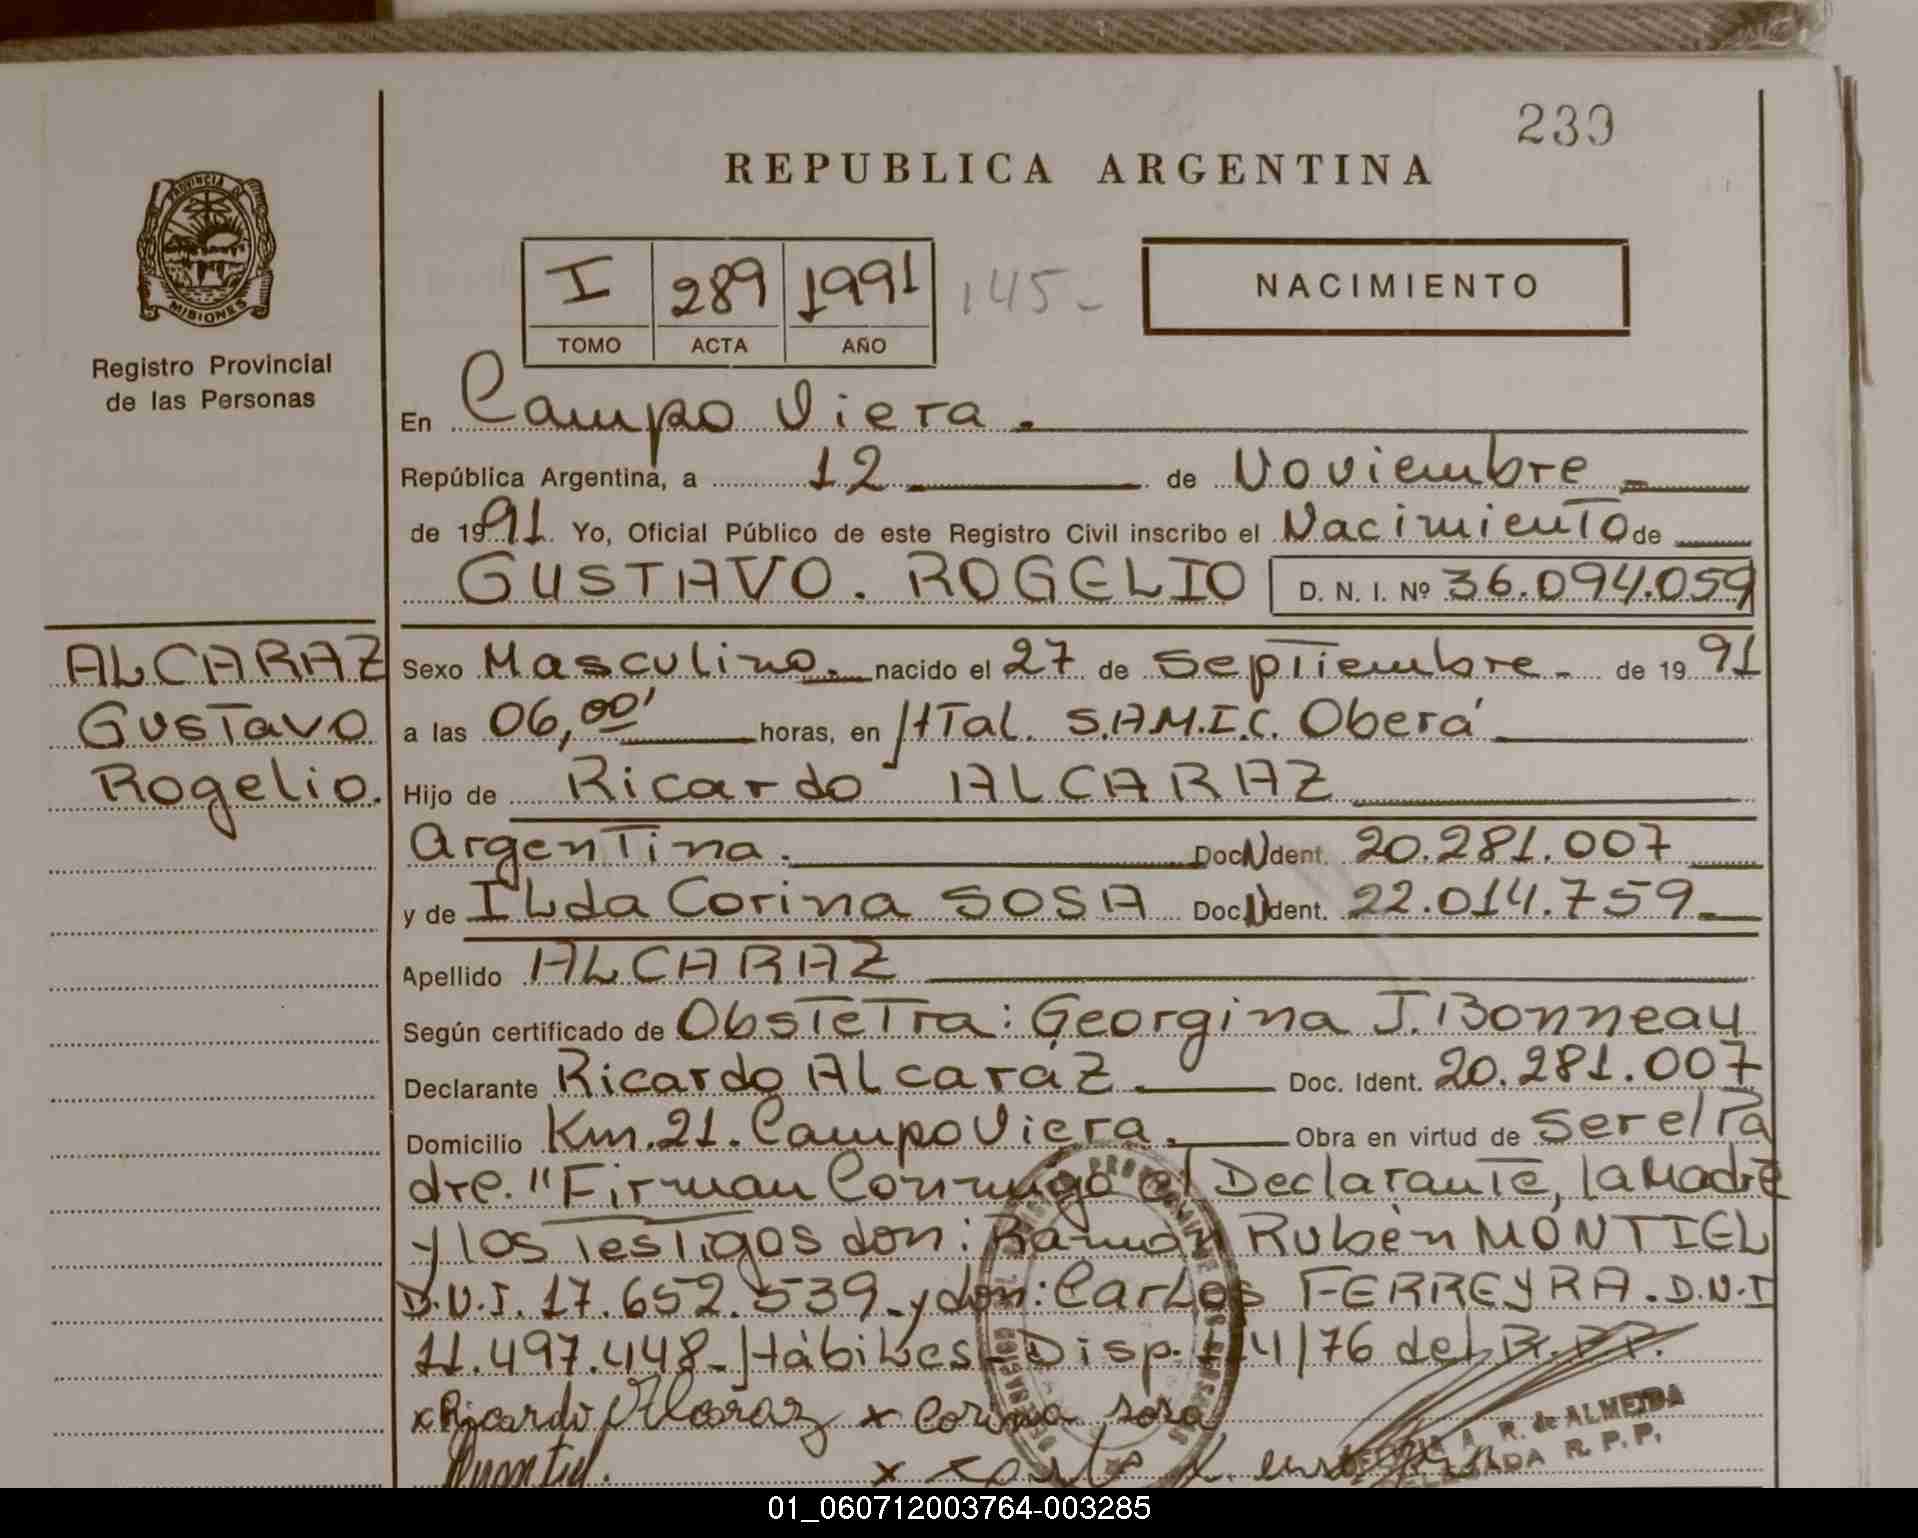 239
REPUBLICA ARGENTINA
PROVINCIA DE
MISIONES
Registro Provincial
de las Personas
I 289 1991 145-
TOMO ACTA AÑO
NACIMIENTO
En Campo Viera.
República Argentina, a 12 de Noviembre
de 1991 Yo, Oficial Público de este Registro Civil inscribo el Nacimiento de
GUSTAVO. ROGELIO D. N. I. Nº 36.094.059
ALCARAZ
Gustavo
Rogelio.
Sexo Masculino. nacido el 27 de Septiembre - de 19 91
a las 06,00' horas, en Htal. S.A.M.I.C. Oberá
Hijo de Ricardo ALCARAZ
Argentina. Doc. Ident. 20.281.007
y de ILda Corina SOSA Doc. Ident. 22.014.759
Apellido ALCARAZ
Según certificado de Obstetra: Georgina J. Bonneau
Declarante Ricardo Alcaráz. Doc. Ident. 20.281.007
Domicilio Km. 21. Campo Viera. Obra en virtud de ser el Pa
dre. "Firman Conmigo el Declarante, la Madre
y los Testigos don: Ramón Rubén MONTIEL
D.N.I. 17.652.539 y don: Carlos FERREYRA. D.N.I
11.497.448 - Hábiles - Disp. 4/76 del R.P.P.
x Ricardo Alcaraz x Corina sosa
Montiel.
A. R. de ALMEIDA
R. P. P.
01_060712003764-003285